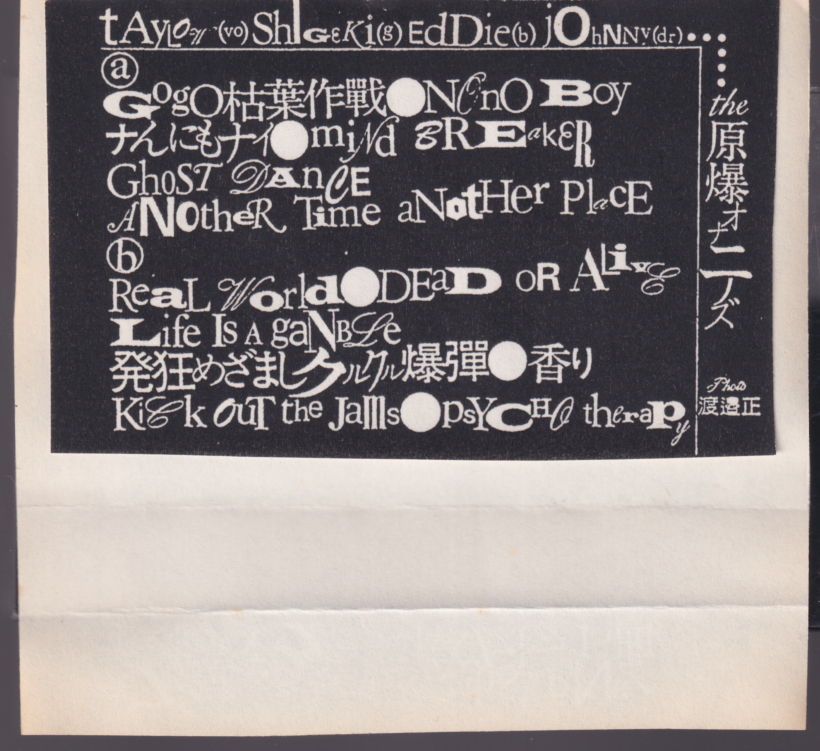 tAyLOw(vo) ShIGeKi(g) EdDie(b) jOhNNy(dr)•••
ⓐ
GOgO枯葉作戰●NO nO Boy
ナんにもナイ●miNd BREakER
GhoST DAnCE
ANOtheR Time aNotHer PlacE
ⓑ
ReaL World●DEaD oR ALivE
Life Is A gaNBLe
発狂めざましクルクル爆彈●香り
KiCk OuT the JaMs●psYCHO therapy
the 原爆オナニーズ
Photo
渡邉正